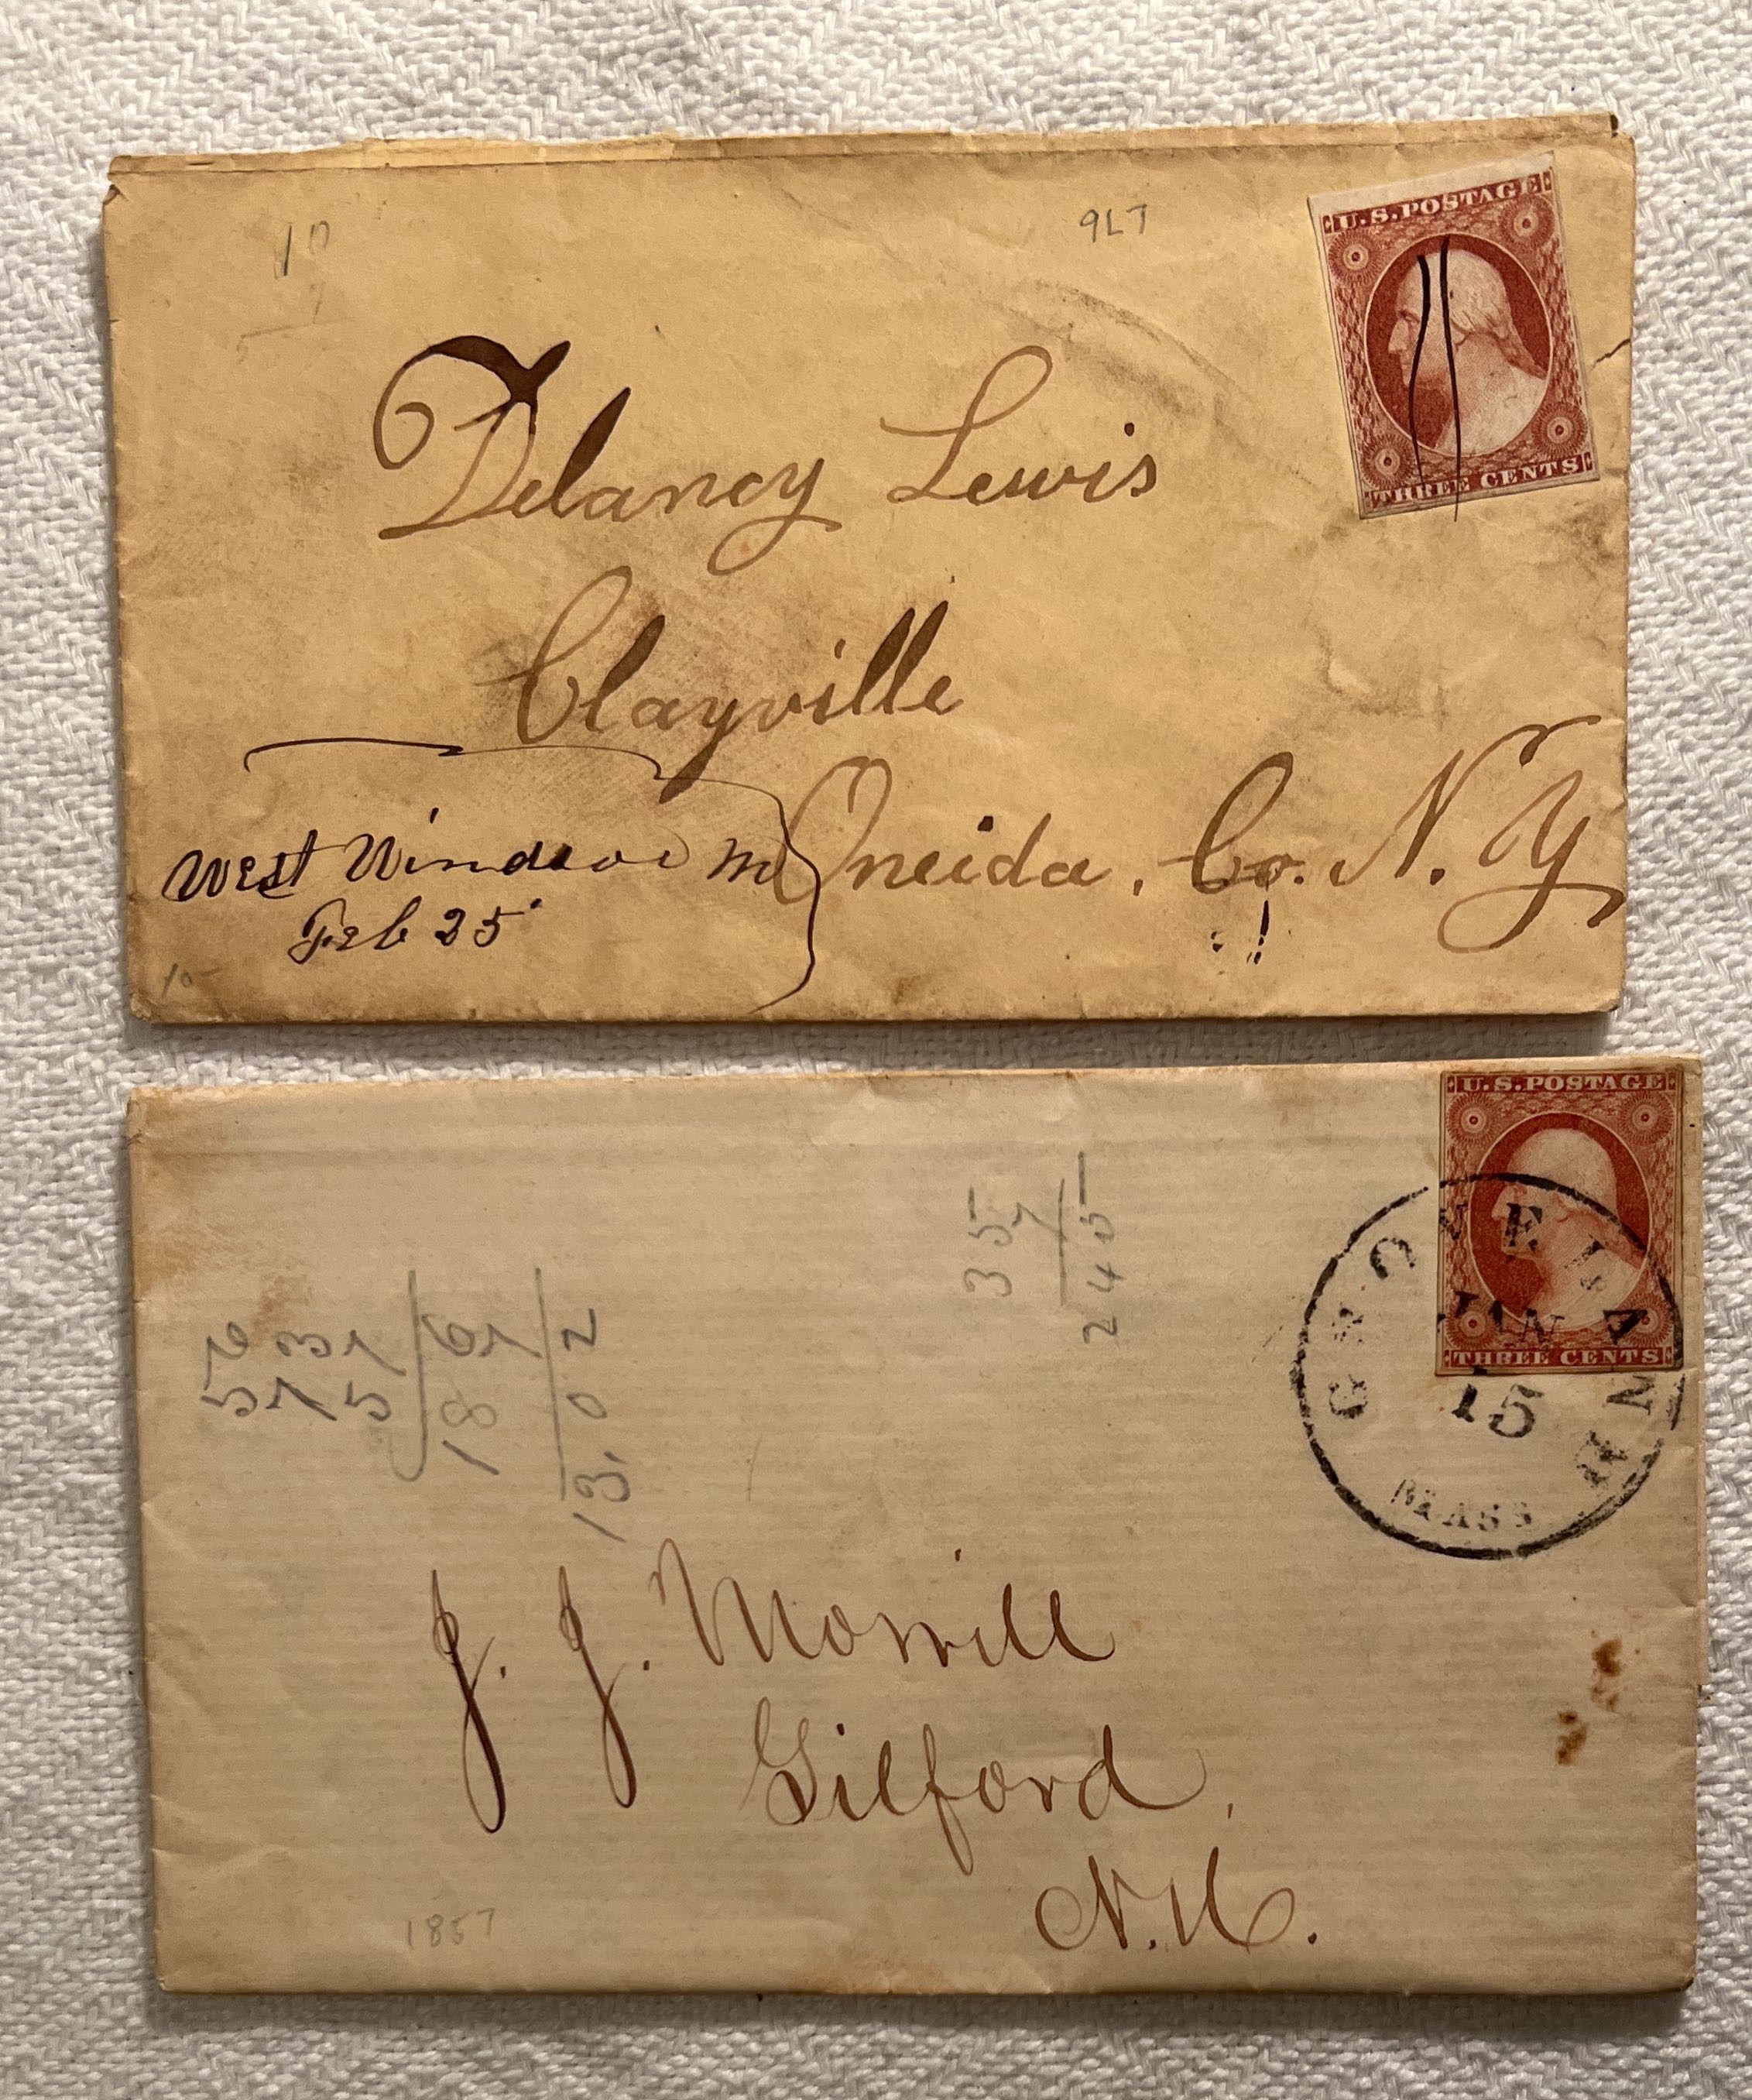 10
7
9L7
U.S. POSTAGE
THREE CENTS
Delancy Lewis
Clayville
Oneida. Co. N. Y
West Windsor
Feb 25
10
U.S. POSTAGE
THREE CENTS
GROVELAND
JAN
15
MASS
35
7
245
56
73
57
186
7
13,02
J. J. Morrill
Gilford,
N.H.
1857